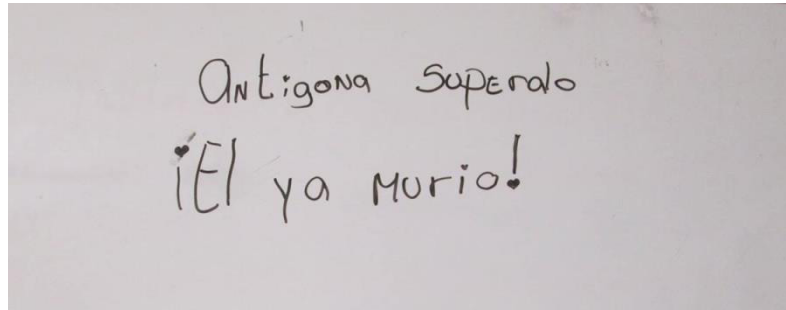 Antigona Superalo
¡El ya Murio!